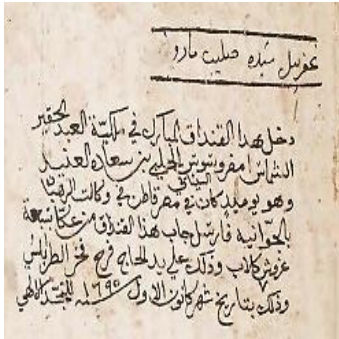 دخل هدا القنداق المبارك في ملكية العبد الحقير
الشماس امفروسيوس الحلبي بن سعاده العنيد
وهو يوميد كان في مصر قاطن في وكالت الرهبان
بالجوانيه فارسل جاب هدا القنداق من عكا بتسعة
غروش كلاب ودلك علي يد الحاج فرج فخر الطرابلسي
ودلك بتاريخ شهر كانون الاول سنة ١٦٩٥ للتجسد الالهي